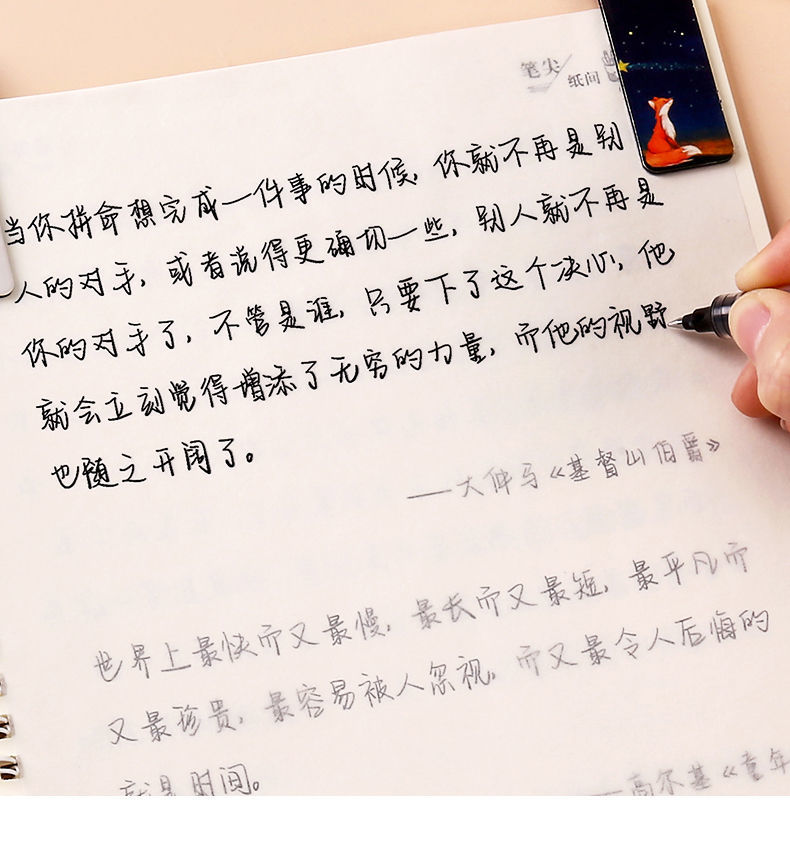 笔尖
纸间
当你拼命想完成一件事的时候，你就不再是别
人的对手，或者说得更确切一些，别人就不再是
你的对手了，不管是谁，只要下了这个决心，他
就会立刻觉得增添了无穷的力量，而他的视野
也随之开阔了。
——大仲马《基督山伯爵》
世界上最快而又最慢，最长而又最短，最平凡而
又最珍贵，最容易被人忽视，而又最令人后悔的
就是时间。
——高尔基《童年